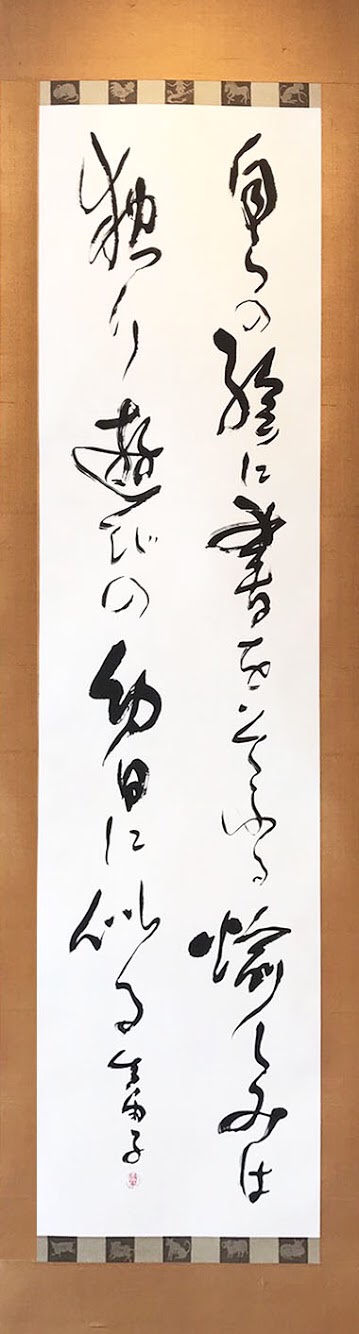 自らの絵に書をそふる愉しみは
独り遊びの幼日に似る